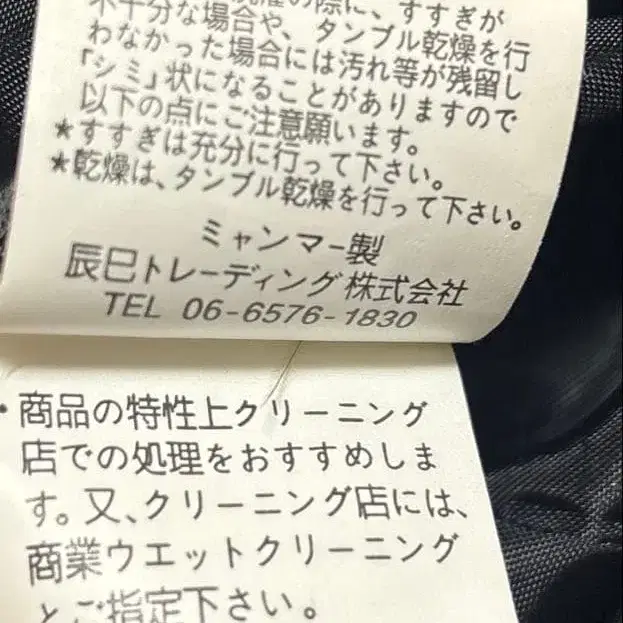 の際に、すすぎが
不十分な場合や、タンブル乾燥を行
わなかった場合には汚れ等が残留し
「シミ」状になることがありますので
以下の点にご注意願います。
★すすぎは充分に行って下さい。
★乾燥は、タンブル乾燥を行って下さい。
ミャンマー製
辰巳トレーディング株式会社
TEL 06-6576-1830
・商品の特性上クリーニング
店での処理をおすすめしま
す。又、クリーニング店には、
商業ウエットクリーニング
とご指定下さい。